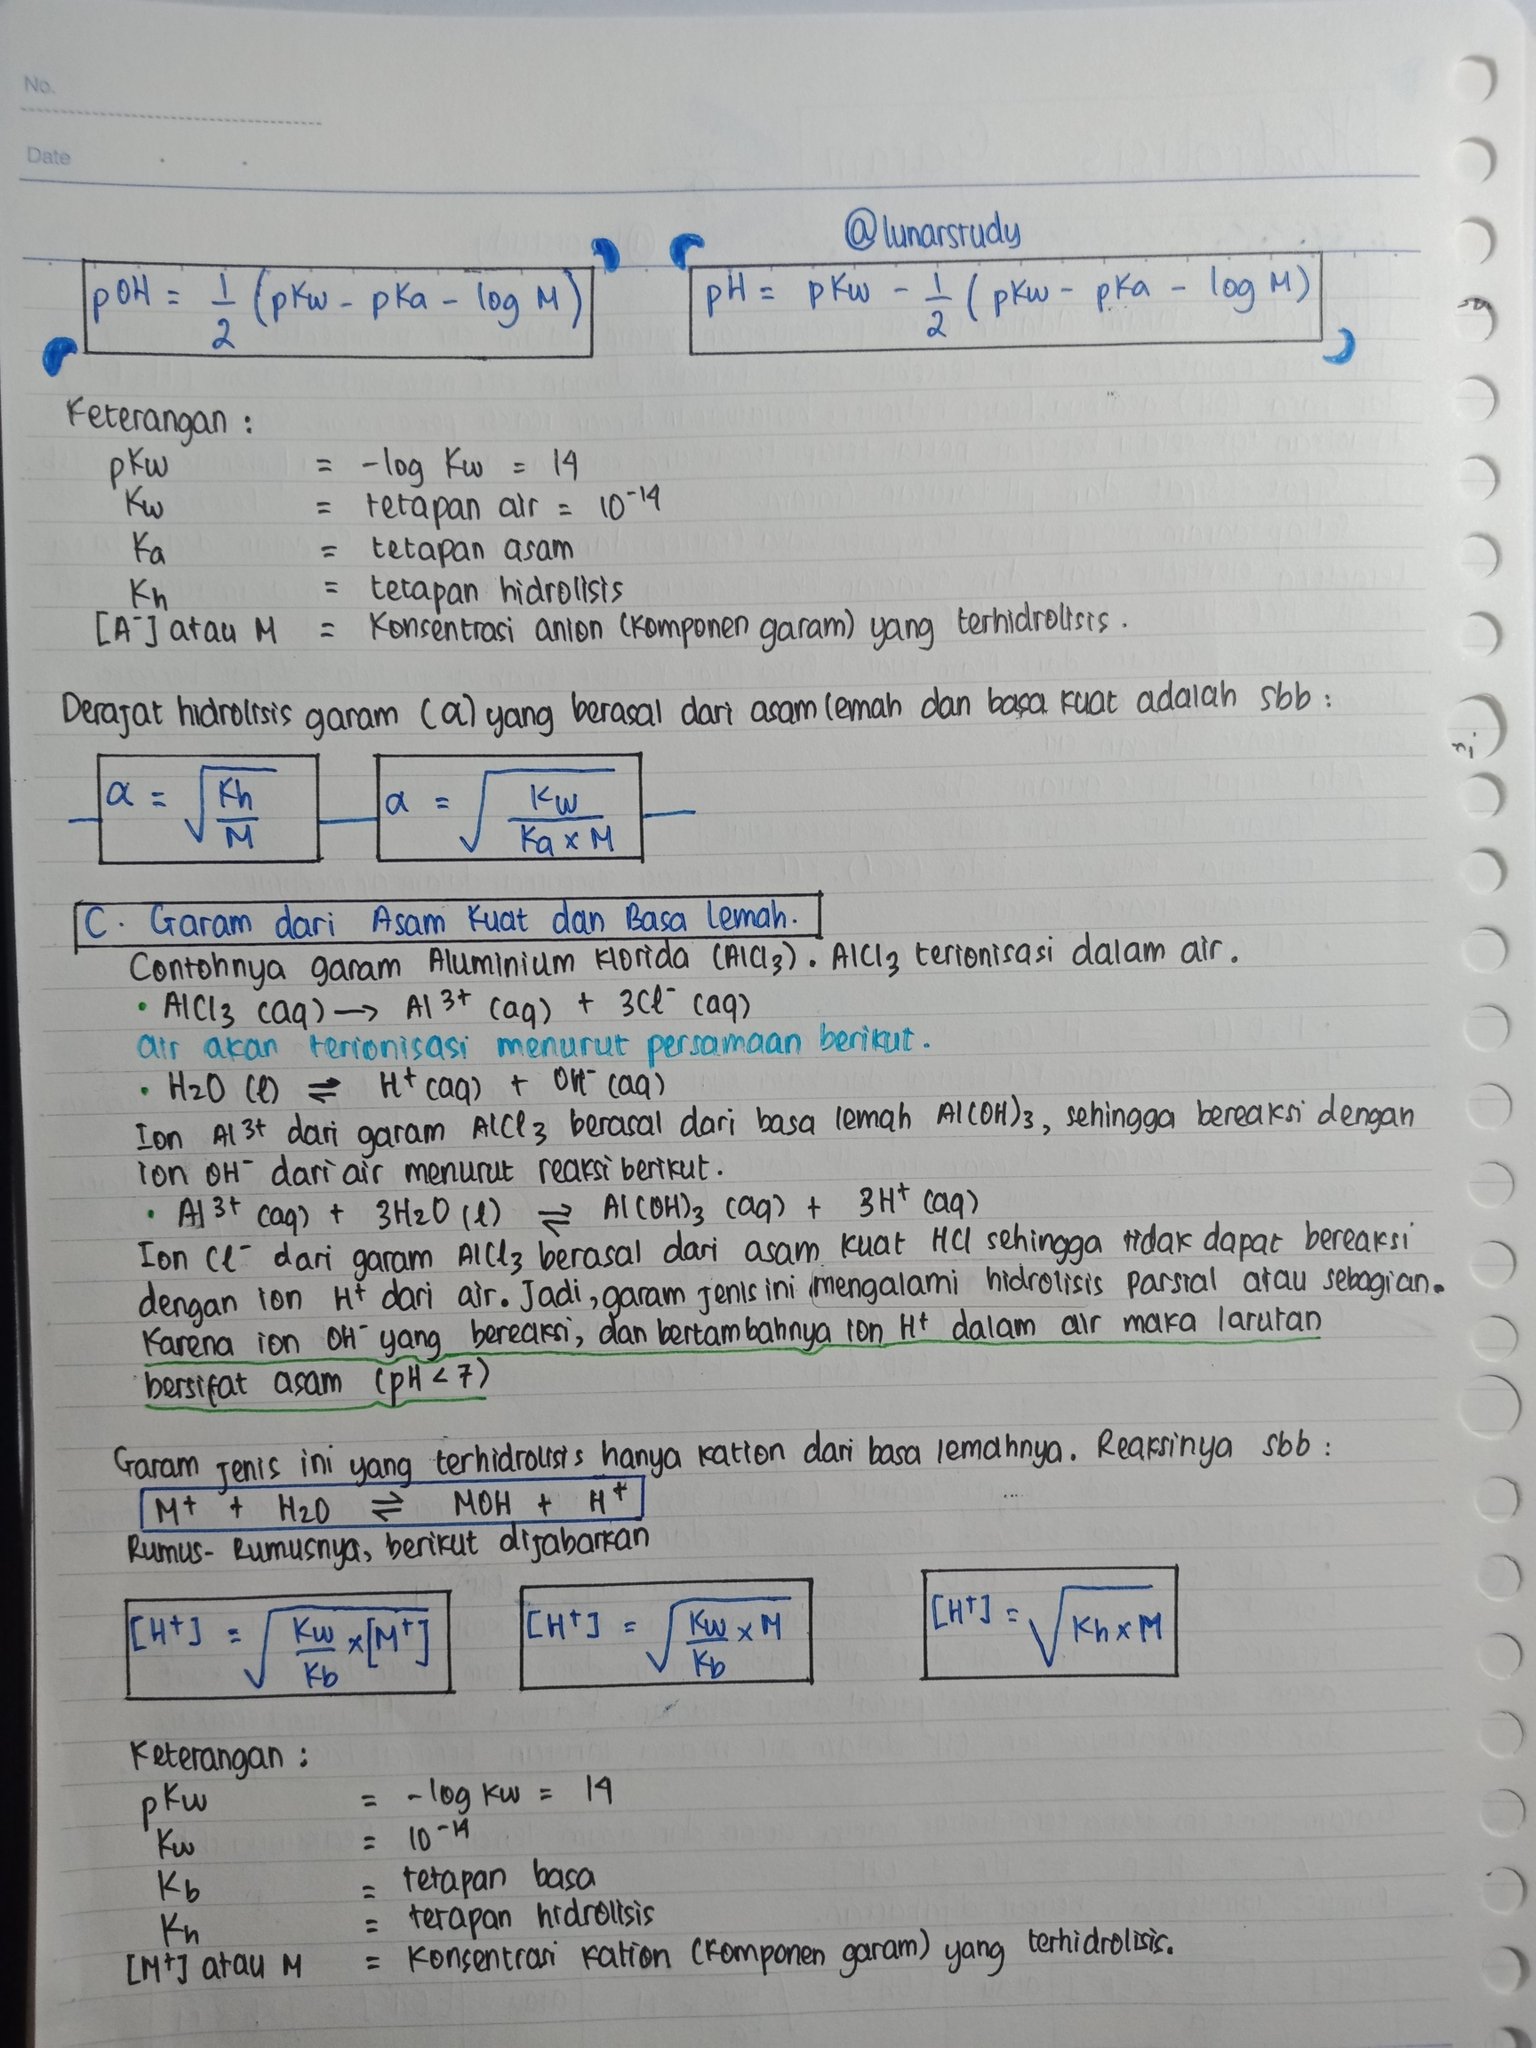 No.
Date
@lunarstudy
pOH = 1/2 (pKw - pKa - log M)
pH = pKw - 1/2 (pKw - pKa - log M)
Keterangan :
pKw = -log Kw = 14
Kw = tetapan air = 10⁻¹⁴
Ka = tetapan asam
Kh = tetapan hidrolisis
[A⁻] atau M = Konsentrasi anion (komponen garam) yang terhidrolisis.
Derajat hidrolisis garam (α) yang berasal dari asam lemah dan basa kuat adalah sbb :
α = √(Kh/M)
α = √(Kw/(Ka x M))
C. Garam dari Asam Kuat dan Basa Lemah.
Contohnya garam Aluminium Klorida (AlCl₃). AlCl₃ terionisasi dalam air.
• AlCl₃ (aq) → Al³⁺ (aq) + 3Cl⁻ (aq)
air akan terionisasi menurut persamaan berikut.
• H₂O (l) ⇌ H⁺ (aq) + OH⁻ (aq)
Ion Al³⁺ dari garam AlCl₃ berasal dari basa lemah Al(OH)₃, sehingga bereaksi dengan
ion OH⁻ dari air menurut reaksi berikut.
• Al³⁺ (aq) + 3H₂O (l) ⇌ Al(OH)₃ (aq) + 3H⁺ (aq)
Ion Cl⁻ dari garam AlCl₃ berasal dari asam kuat HCl sehingga tidak dapat bereaksi
dengan ion H⁺ dari air. Jadi, garam jenis ini mengalami hidrolisis parsial atau sebagian.
Karena ion OH⁻ yang bereaksi, dan bertambahnya ion H⁺ dalam air maka larutan
bersifat asam (pH < 7)
Garam jenis ini yang terhidrolisis hanya kation dari basa lemahnya. Reaksinya sbb :
M⁺ + H₂O ⇌ MOH + H⁺
Rumus-Rumusnya, berikut dijabarkan
[H⁺] = √(Kw/Kb x [M⁺])
[H⁺] = √(Kw/Kb x M)
[H⁺] = √(Kh x M)
Keterangan :
pKw = -log Kw = 14
Kw = 10⁻¹⁴
Kb = tetapan basa
Kh = tetapan hidrolisis
[M⁺] atau M = Konsentrasi kation (komponen garam) yang terhidrolisis.